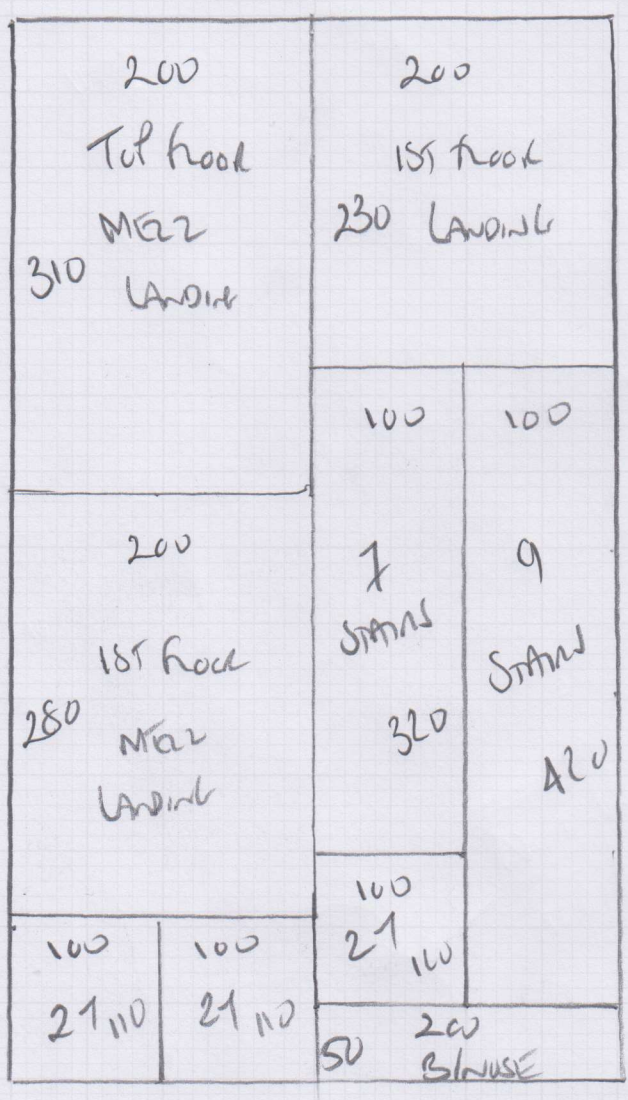 200
TOP FLOOR
MEZZ
310
LANDING
200
1ST FLOOR
230 LANDING
200
1ST FLOOR
280
MEZZ
LANDING
100
7
STAIRS
320
100
9
STAIRS
420
100
21 110
100
21 110
100
21
100
50
200
B/NOSE